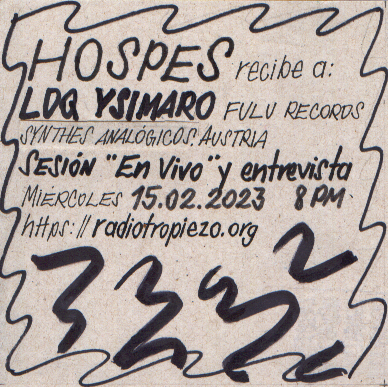 HOSPES recibe a:
LDQ YSIMARO FULU RECORDS
SYNTHES ANALÓGICOS. AUSTRIA
SESIÓN "En Vivo" y entrevista
MIÉRCOLES 15.02.2023 8PM
https://radiotropiezo.org